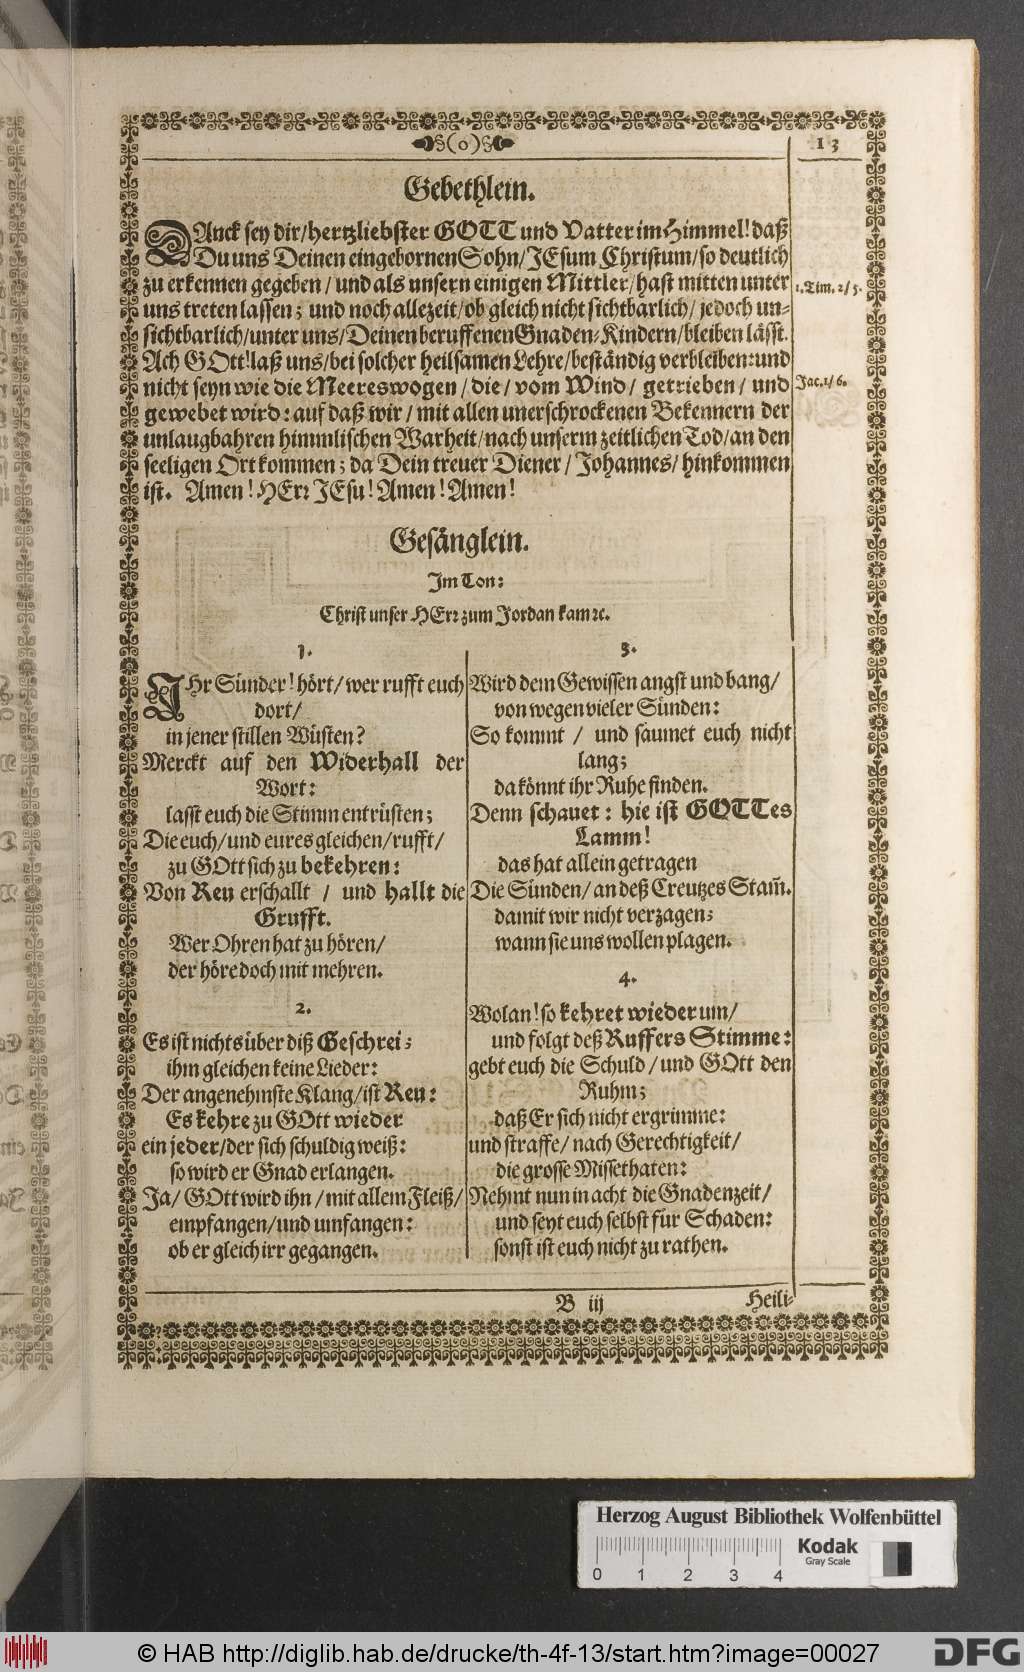 §(o)§
13
Gebethlein.
DAnck sey dir/hertzliebster GOTT und Vatter im Himmel! daß
Du uns Deinen eingebornen Sohn/JEsum Christum/so deutlich
zu erkennen gegeben/und als unsern einigen Mittler/hast mitten unter
1.Tim.2/5.
uns treten lassen; und noch allezeit/ob gleich nicht sichtbarlich/jedoch un-
sichtbarlich/unter uns/Deinen beruffenen Gnaden-Kindern/bleiben lässt.
Ach GOtt! laß uns/bei solcher heilsamen Lehre/beständig verbleiben: und
nicht seyn wie die Meereswogen/die/vom Wind/getrieben/und
Jac.1/6.
gewebet wird: auf daß wir/mit allen unerschrockenen Bekennern der
unlaugbahren himmlischen Warheit/nach unserm zeitlichen Tod/an den
seeligen Ort kommen; da Dein treuer Diener/Johannes/hinkommen
ist. Amen! HErꝛ JEsu! Amen! Amen!
Gesänglein.
Im Ton:
Christ unser HErꝛ zum Jordan kam ꝛc.
1.
IHr Sünder! hört/wer rufft euch
dort/
in jener stillen Wüsten?
Merckt auf den Widerhall der
Wort:
lasst euch die Stimm entrüsten;
Die euch/und eures gleichen/rufft/
zu GOtt sich zu bekehren:
Von Reu erschallt / und hallt die
Grufft.
Wer Ohren hat zu hören/
der höre doch mit mehren.
2.
Es ist nichts über diß Geschrei;
ihm gleichen keine Lieder:
Der angenehmste Klang/ist Reu:
Es kehre zu GOtt wieder
ein jeder/der sich schuldig weiß:
so wird er Gnad erlangen.
Ja/GOtt wird ihn/mit allem Fleiß/
empfangen/und umfangen:
ob er gleich irr gegangen.
3.
Wird dem Gewissen angst und bang/
von wegen vieler Sünden:
So kommt / und säumet euch nicht
lang;
da könnt ihr Ruhe finden.
Denn schauet: hie ist GOTTes
Lamm!
das hat allein getragen
Die Sünden/an deß Creutzes Stam̃.
damit wir nicht verzagen;
wann sie uns wollen plagen.
4.
Wolan! so kehret wieder um/
und folgt deß Ruffers Stimme:
gebt euch die Schuld/und GOtt den
Ruhm;
daß Er sich nicht ergrimme:
und straffe/nach Gerechtigkeit/
die grosse Missethaten:
Nehmt nun in acht die Gnadenzeit/
und seyt euch selbst für Schaden:
sonst ist euch nicht zu rathen.
B iij
Heili-
Herzog August Bibliothek Wolfenbüttel
Kodak
Gray Scale
0 1 2 3 4
© HAB http://diglib.hab.de/drucke/th-4f-13/start.htm?image=00027
DFG